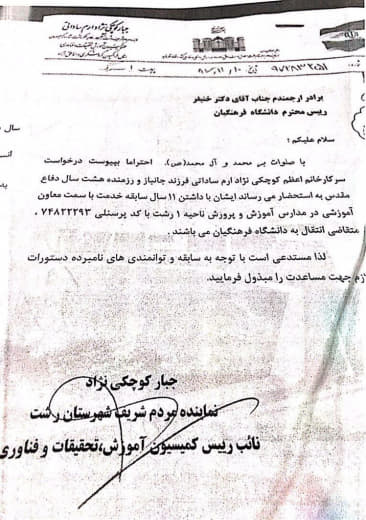 جبار کوچکی نژاد ارم ساداتی
برادر ارجمندم جناب آقای دکتر خنیفر
رییس محترم دانشگاه فرهنگیان
سلام علیکم؛
با صلوات بر محمد و آل محمد(ص)، احتراما بپیوست درخواست
سرکارخانم اعظم کوچکی نژاد ارم ساداتی فرزند جانباز و رزمنده هشت سال دفاع
مقدس به استحضار می رساند ایشان با داشتن ۱۱ سال سابقه خدمت با سمت معاون
آموزشی در مدارس آموزش و پرورش ناحیه ۱ رشت با کد پرسنلی ۷۴۸۲۲۲۹۳ ،
متقاضی انتقال به دانشگاه فرهنگیان می باشند .
لذا مستدعی است با توجه به سابقه و توانمندی های نامبرده دستورات
لازم جهت مساعدت را مبذول فرمایید.
جبار کوچکی نژاد
نماینده مردم شریف شهرستان رشت
نائب رییس کمیسیون آموزش،تحقیقات و فناوری